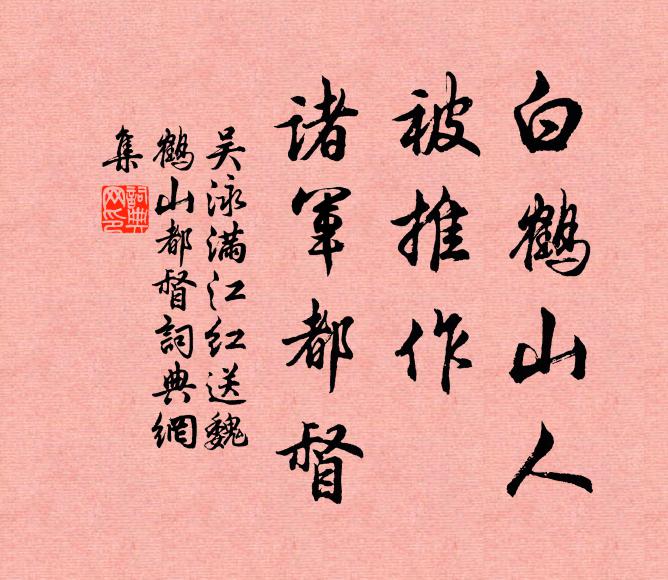 白鹤山人
被推作
诸军都督
吴泳满江红送魏
鹤山都督词典網
集
词典
网印